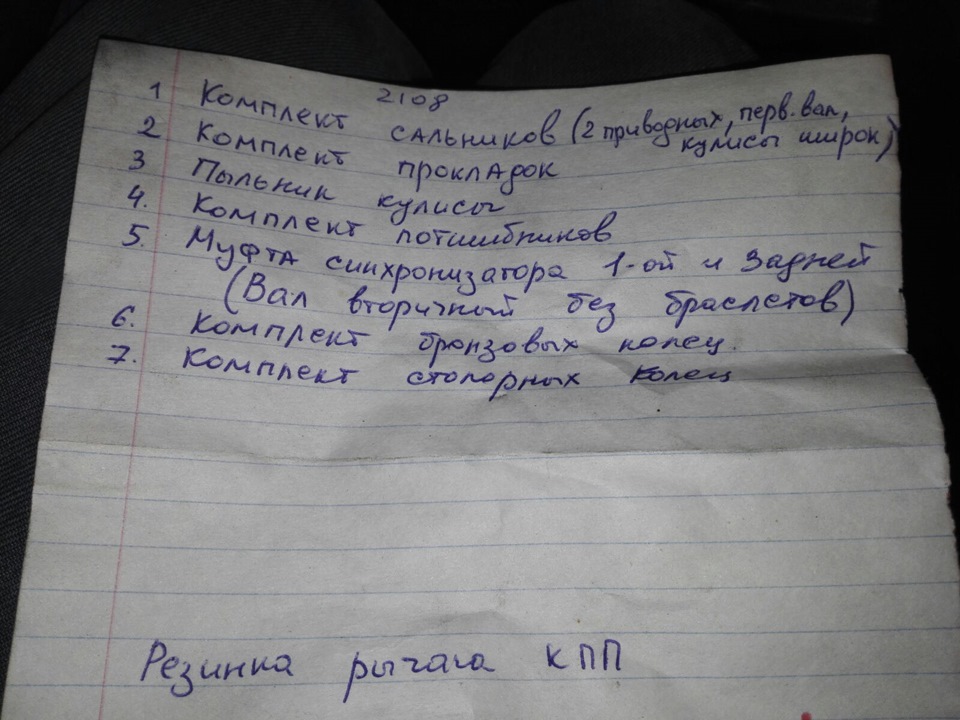 2108
1 Комплект сальников (2 приводных, перв. вал,
кулисы широк)
2 Комплект прокладок
3 Пыльник кулисы
4. Комплект потшибников
5. Муфта синхронизатора 1-ой и Задней
(Вал вторичный без браслетов)
6. Комплект бронзовых колец.
7. Комплект стопорных колец
Резинка рычага КПП